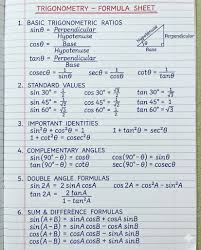 TRIGONOMETRY – FORMULA SHEET
1. BASIC TRIGONOMETRIC RATIOS
sinθ = Perpendicular / Hypotenuse
cosθ = Base / Hypotenuse
tanθ = Perpendicular / Base
Hypotenuse
Perpendicular
Base
cosecθ = 1/sinθ secθ = 1/cosθ cotθ = 1/tanθ
2. STANDARD VALUES
sin 30° = 1/2 cos 30° = √3/2
sin 45° = cos 45° = tan 45° = 1
sin 60° = √3/2 tan 60° = √3
3. IMPORTANT IDENTITIES
sin²θ + cos²θ = 1 1 + tan²θ = sec²θ
1 + cot²θ = cosec²θ
4. COMPLEMENTARY ANGLES
sin(90° – θ) = cosθ cos(90° – θ) = sinθ
tan(90° – θ) = cotθ sec(90° – θ) = cosecθ
5. DOUBLE ANGLE FORMULAS
sin 2A = 2 sinA cosA cos 2A = cos²A – sin²A
tan 2A = 2 tanA / 1 – tan²A
6. SUM & DIFFERENCE FORMULAS
sin(A + B) = sinA cosB + cosA sinB
sin(A – B) = sinA cosB – cosA sinB
cos(A + B) = cosA cosB – sinA sinB